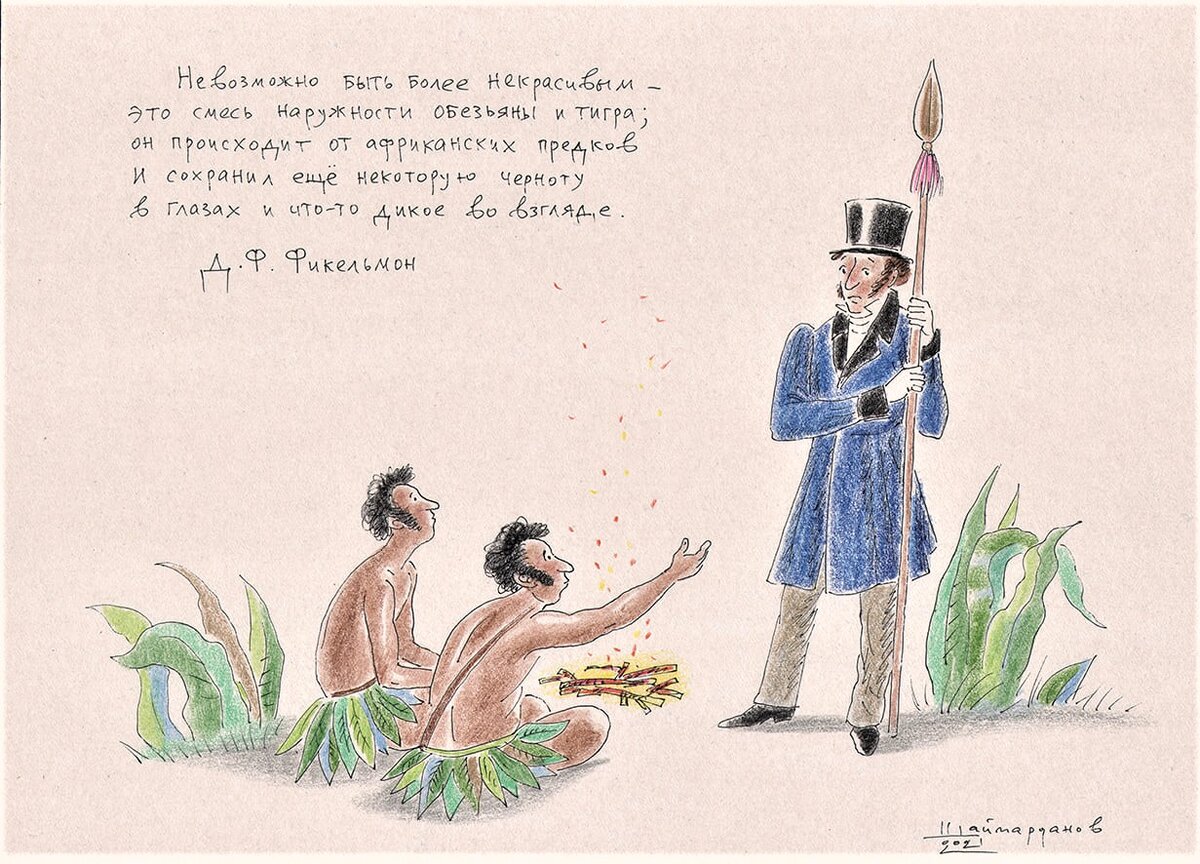 Невозможно быть более некрасивым –
это смесь наружности обезьяны и тигра;
он происходит от африканских предков
и сохранил ещё некоторую черноту
в глазах и что-то дикое во взгляде.
Д.Ф. Фикельмон
Шаймарданов
2021